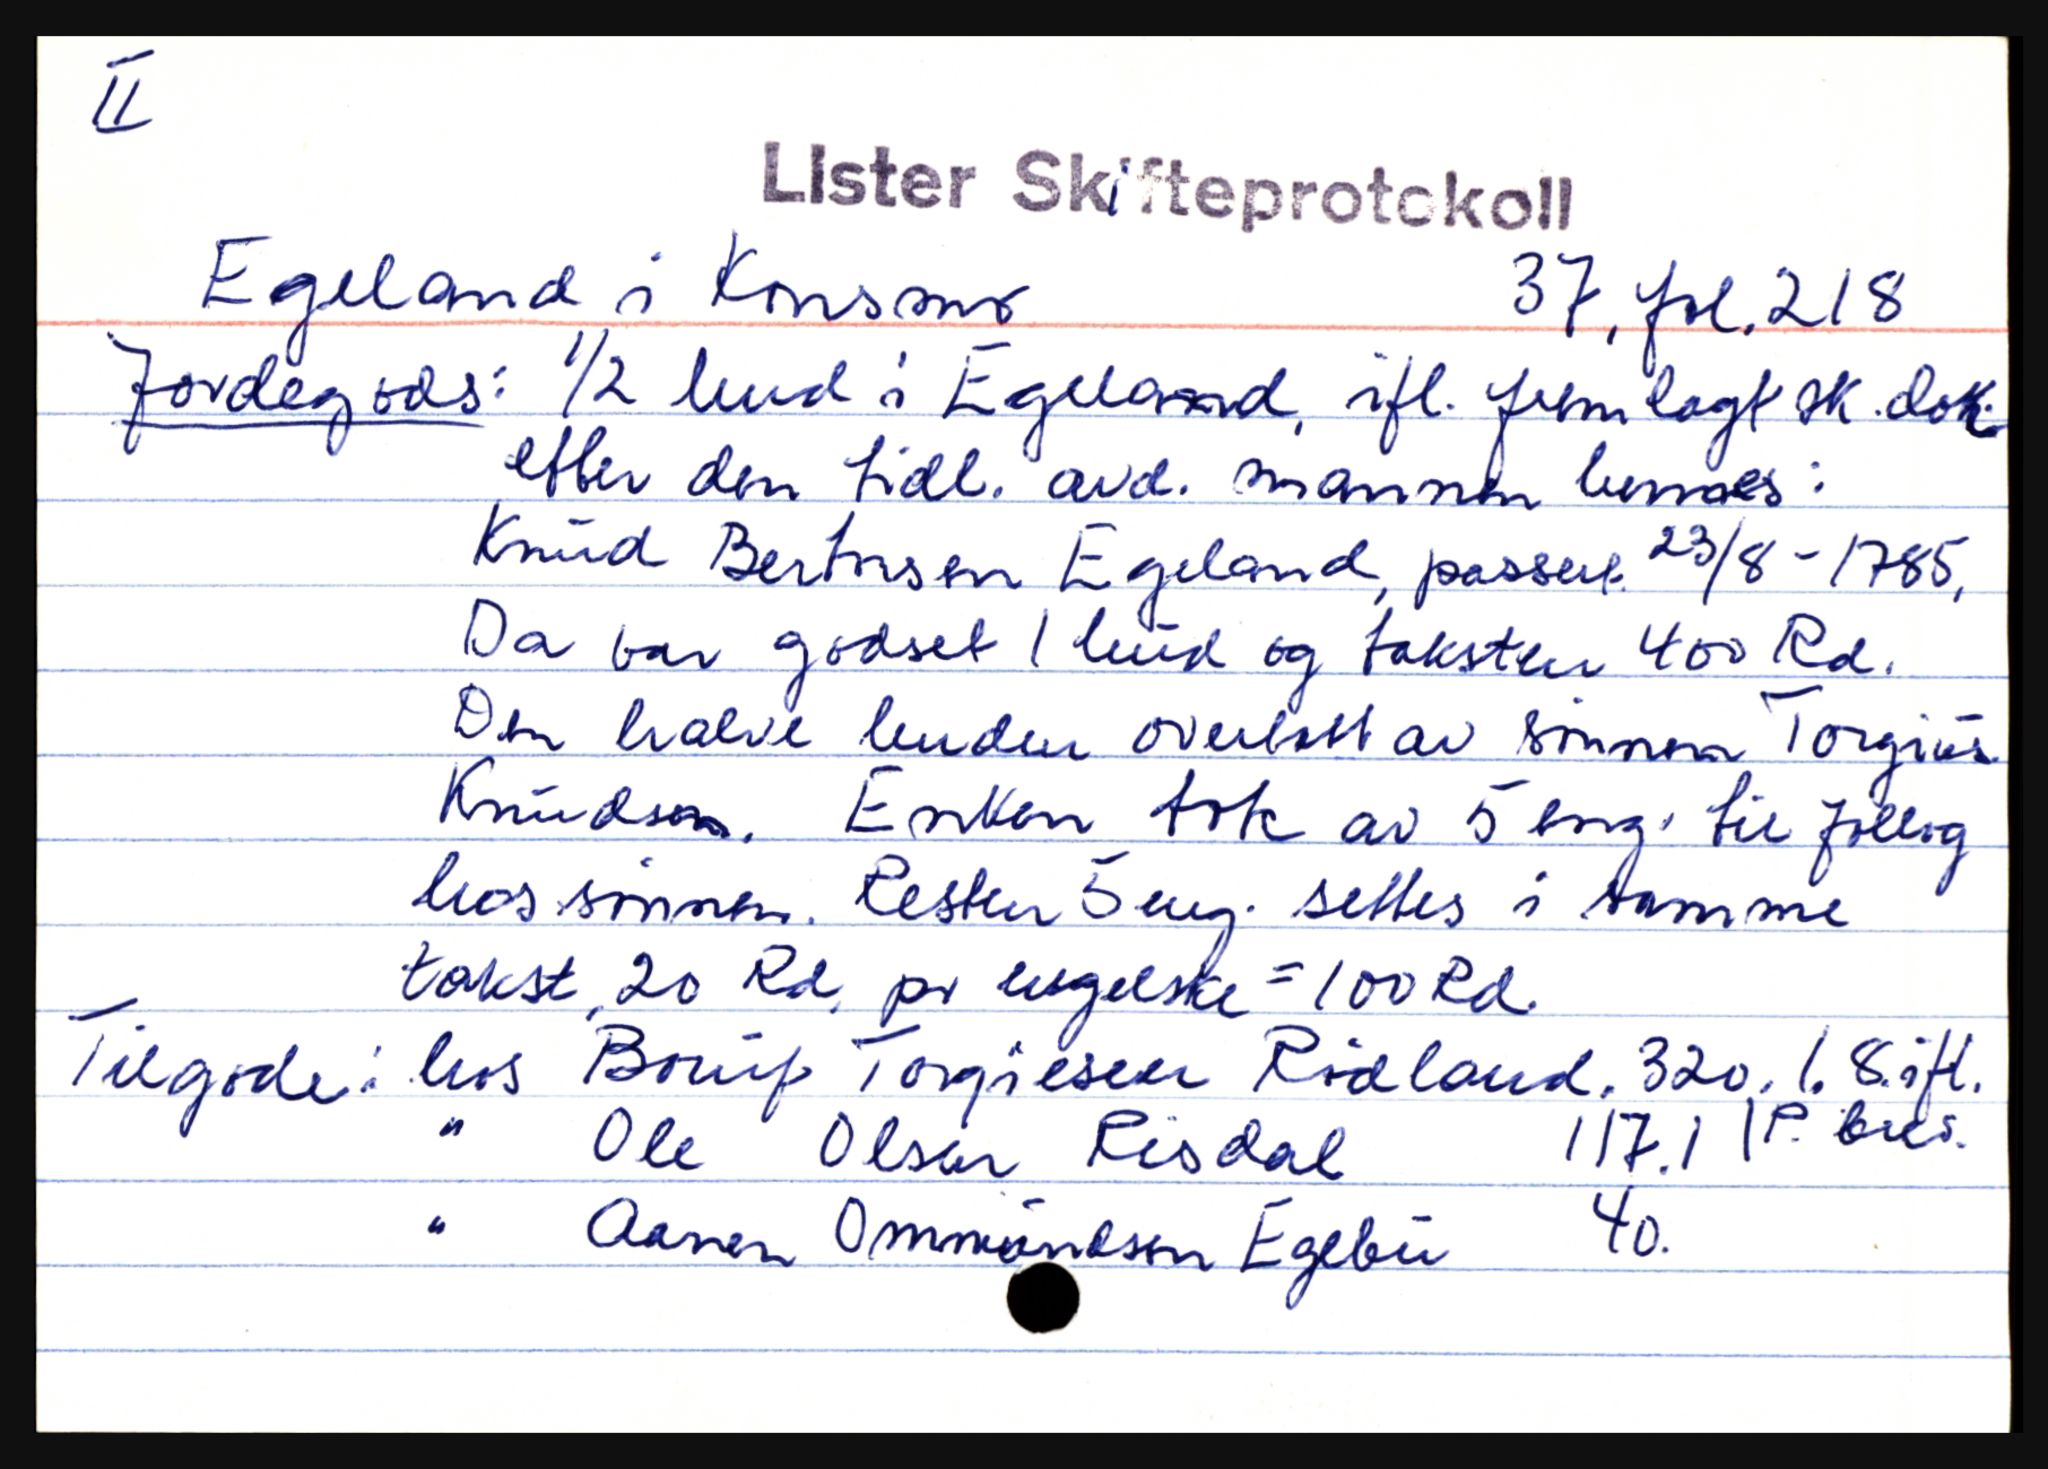 II
Lister Skifteprotokoll
Egeland i Konsmo 37, fol. 218
Jordegods: 1/2 hud i Egeland, ifl. fremlagt sk. dok.
efter den tidl. avd. mannen hennes:
Knud Bertorsen Egeland, passert 23/8 - 1785,
Da var godset 1 hud og taksten 400 Rd.
Den halve huden overlatt av sønnen Torgius
Knudsen. Enken tok av 5 eng. til follog
hos sønnen. Resten 5 eng. settes i samme
takst, 20 Rd. pr engelske = 100 Rd.
Tilgode: hos Torgiesen Rødland. 320. 1. 8. ifl.
" Ole Olsen Risdal 117. 1 | P. brev.
" Aanen Ommundsen Egebu 40.